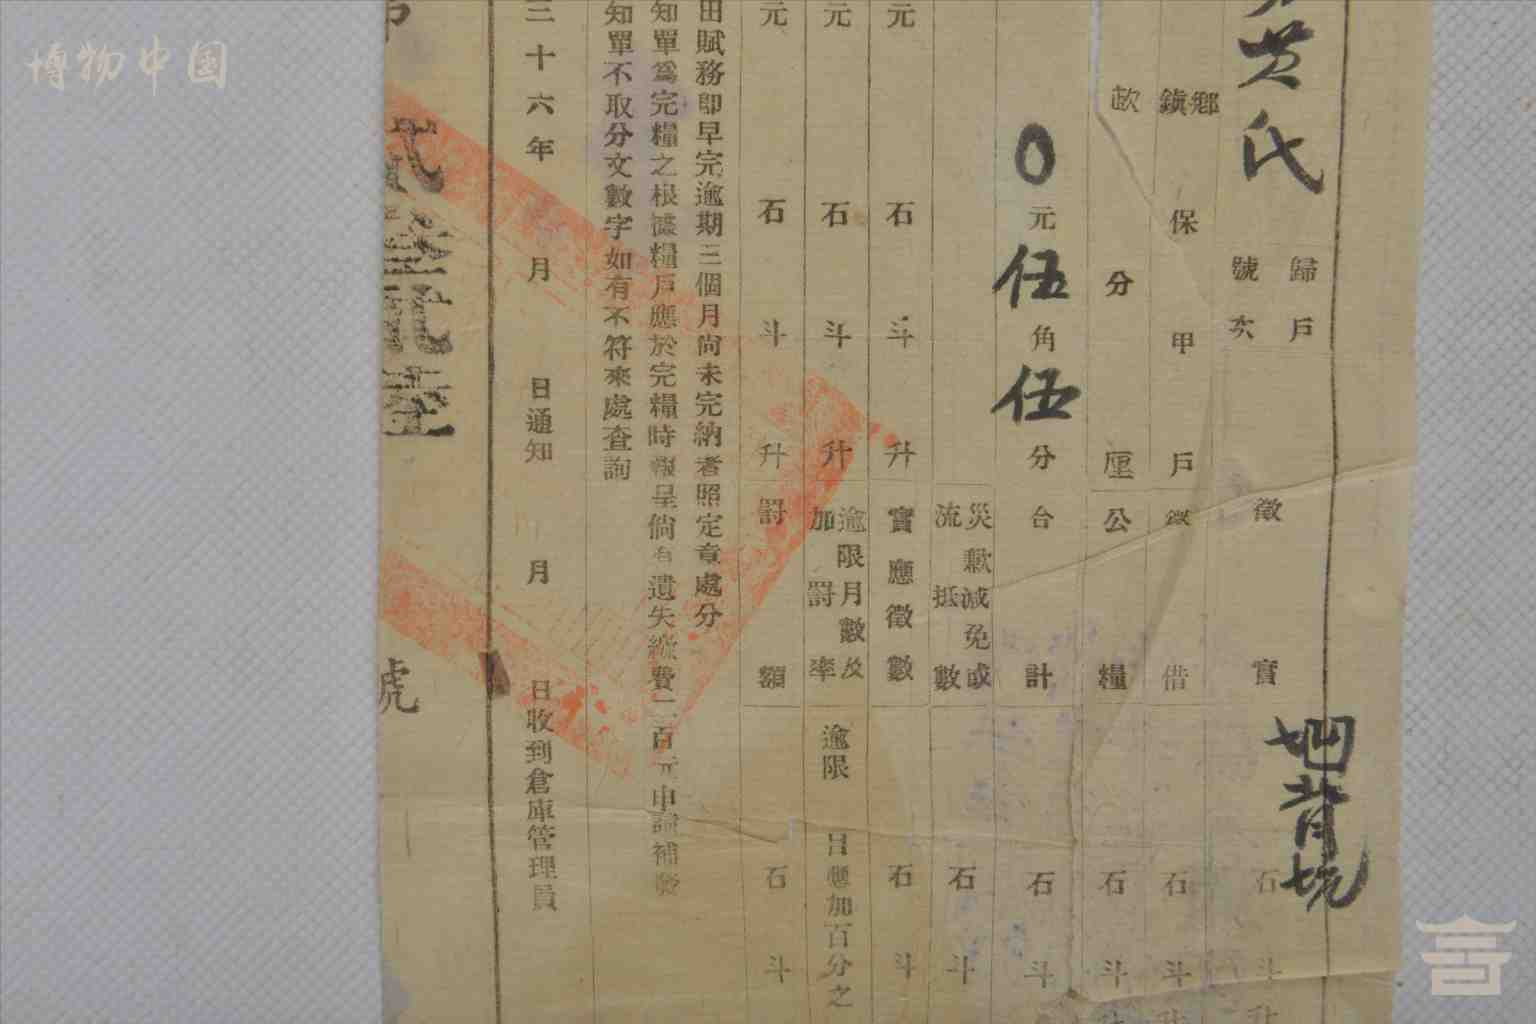 博物中国
黄氏
歸戶
號次
徵實
地背坑
石斗升
鄉鎮保甲戶
徵借
石斗升
畝分厘
公糧
石斗升
0元伍角伍分
合計
石斗
災歉減免或
流抵數
石斗
元石斗升
實應徵數
石斗
元石斗升
逾限月數及
加罰率
逾限 日應加百分之
元石斗升
罰額
石斗
田賦務卽早完逾期三個月尙未完納者照定章處分
知單爲完糧之根據糧戶應於完糧時報呈倘有遺失繳費二百元申請補發
知單不取分文數字如有不符來處查詢
三十六年 月 日通知 月 日收到倉庫管理員
壹
號